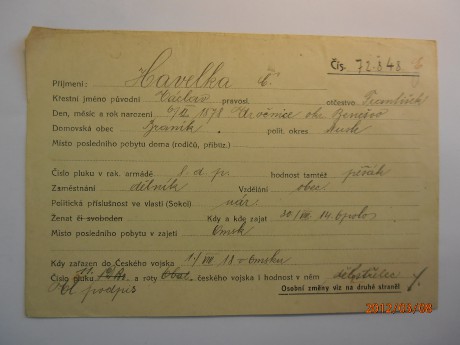 Čís. 72.848
Příjmení: Havelka Č.
Křestní jméno původní Václav pravosl. otčestvo František
Den, měsíc a rok narození 1878 okr. Benešov
Domovská obec polit. okres
Místo posledního pobytu doma (rodičů, přibliz.)
Číslo pluku v rak. armádě 1. d. pr. hodnost tamtéž pěšák
Zaměstnání dělník Vzdělání obec.
Politická příslušnost ve vlasti (Sokol) nár.
Ženat či svoboden Kdy a kde zajat 30/VIII. 14.
Místo posledního pobytu v zajetí Omsk
Kdy zařazen do Českého vojska 1/VIII 18 v Omsku
Číslo pluku a roty českého vojska i hodnost v něm dělostřelec
podpis
Osobní změny viz na druhé straně!
2012/03/08